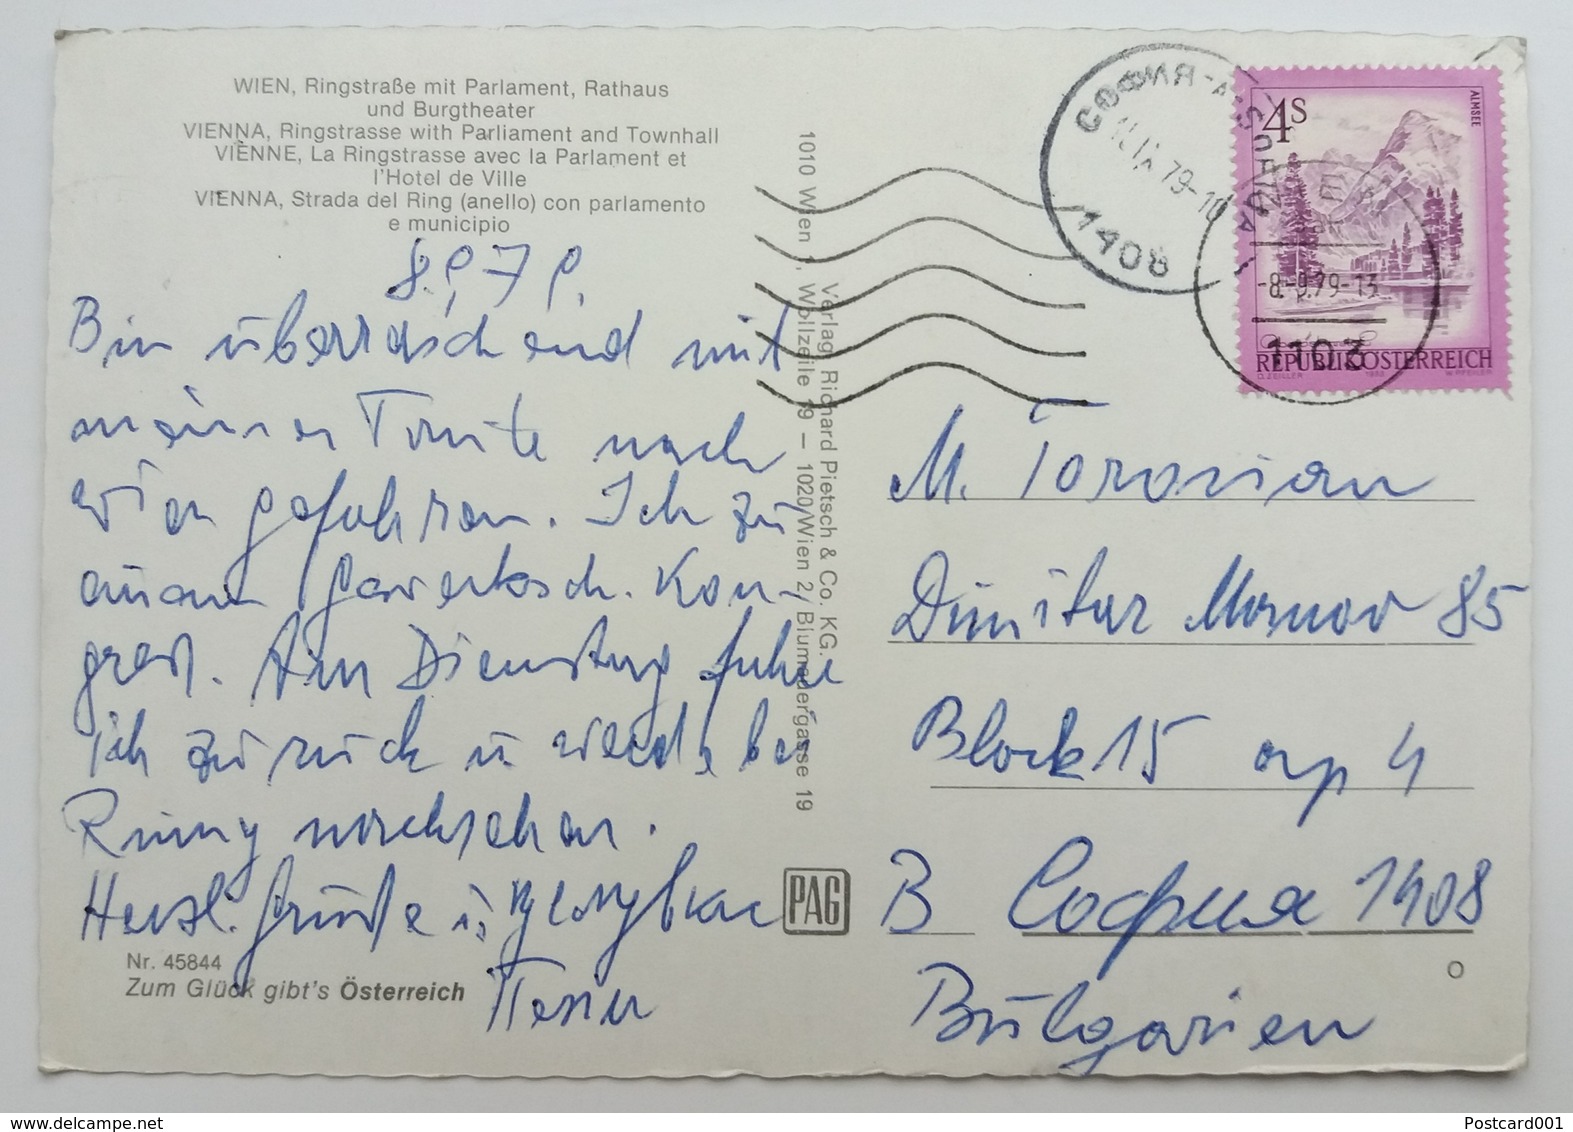 WIEN, Ringstraße mit Parlament, Rathaus
und Burgtheater
VIENNA, Ringstrasse with Parliament and Townhall
VIENNE, La Ringstrasse avec la Parlament et
l'Hotel de Ville
VIENNA, Strada del Ring (anello) con parlamento
e municipio
8.9.79.
Bin überraschend mit
meiner Tante nach
Wien gefahren. Ich zu
einem Gewerksch. Kon-
greß. Am Dienstag fahre
ich zurück u. werde bei
nachsehen.
Herzl. Grüße u.
Nr. 45844
Zum Glück gibt's Österreich
Verlag Richard Pietsch & Co. KG.
1010 Wien 1, Wollzeile 19 – 1020 Wien 2, Blumauergasse 19
PAG
СОФИЯ
SOFIA
79-10
1408
4S
ALMSEE
-8.-9.79-13
1103
REPUBLIK ÖSTERREICH
O. ZEILLER
W. PFEILER
M. Torosian
Dimitar Manov 85
Block 15 ap 4
В София 1408
Bulgarien
Postcard001
www.delcampe.net